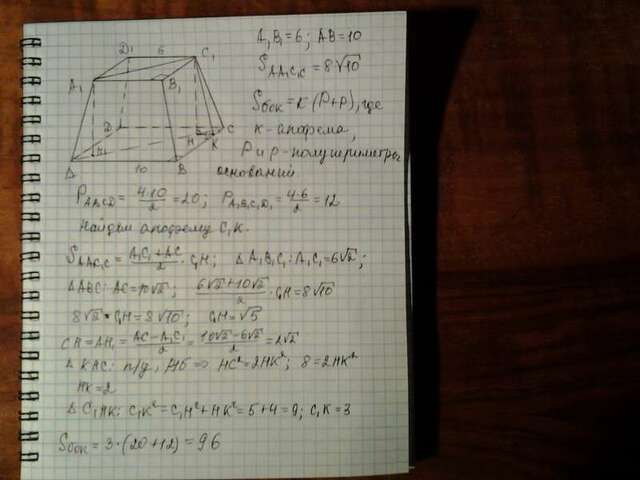 A₁B₁=6; AB=10
S_AA₁C₁C = 8√10
Sбок = k(P+p), где
k - апофема,
P и p - полупериметры
оснований
D₁ 6 C₁
A₁ B₁
D H C
K
A H₁ 10 B
P_ABCD = 4·10/2 = 20; P_A₁B₁C₁D₁ = 4·6/2 = 12
Найдем апофему C₁K.
S_AA₁C₁C = (A₁C₁+AC)/2 · C₁H; Δ A₁B₁C₁: A₁C₁=6√2;
Δ ABC: AC=10√2; (6√2+10√2)/2 · C₁H = 8√10
8√2 · C₁H = 8√10; C₁H = √5
CH = AH₁ = (AC-A₁C₁)/2 = (10√2-6√2)/2 = 2√2
Δ KHC: п/у, => HC²=2HK²; 8=2HK²
HK=2
Δ C₁HK: C₁K² = C₁H²+HK² = 5+4=9; C₁K=3
Sбок = 3·(20+12) = 96